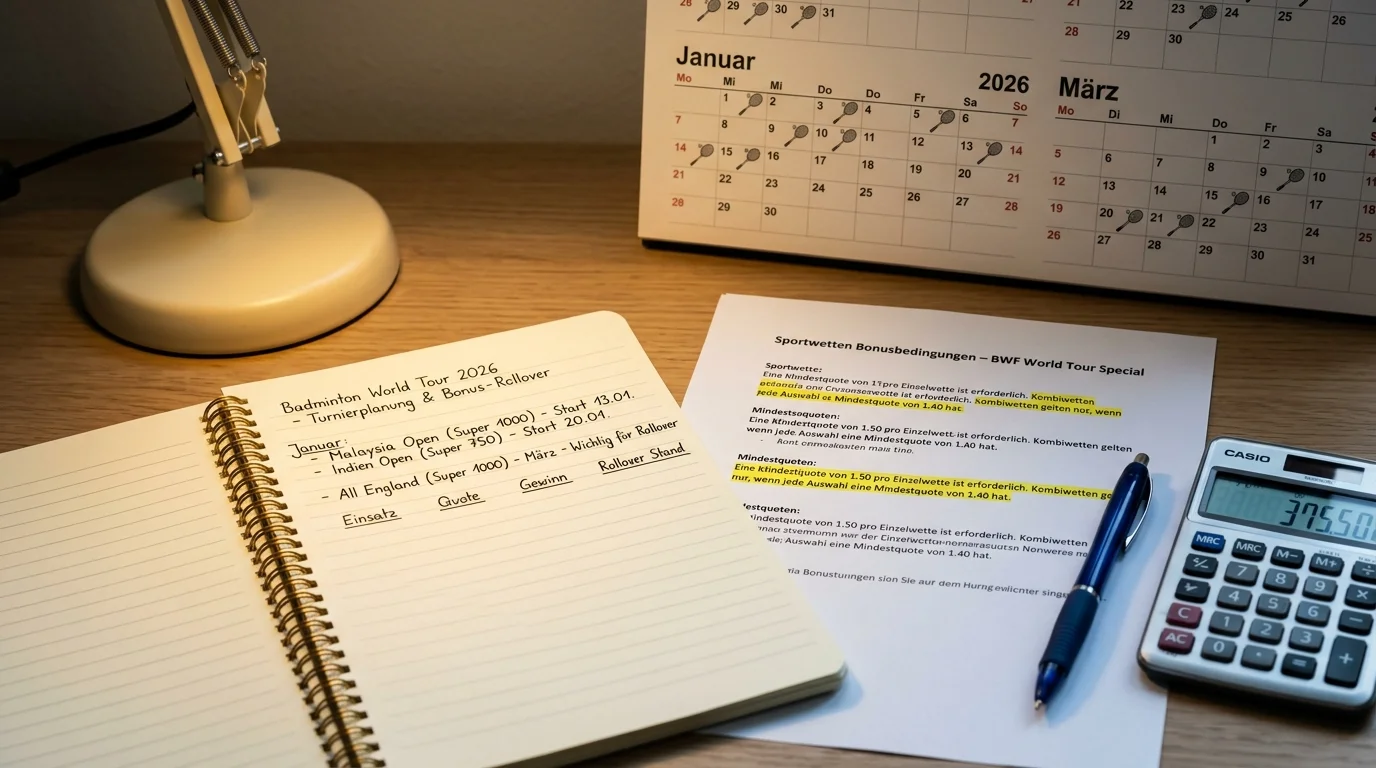 28 29 30 31
21 22 23 24 25 26
28 29 30
Januar 2026
Mo Mi Mi Do Do Fr Sa So
1 2 3 4 5 6 7
7 8 9 10 11 12 13 14
14 15 16 17 18 19 20 21
21 22 23 24 25 26 27 28
28 29 30
März
Mo Di Mi Do Fr Sa
1 2 3 4
5 6 7 8 9 10 11
12 13 14 15 16 17 18
19 20 21 22 23 24 25
26 27 28 29 30 31
Badminton World Tour 2026
- Turnierplanung & Bonus-Rollover
Januar:
- Malaysia Open (Super 1000) - Start 13.01.
- Indien Open (Super 750) - Start 20.01.
- All England (Super 1000) - März - Wichlig für Rollover
Einsatz Quote Gewinn Rollover Stand
Sportwetten Bonusbedingungen – BWF World Tour Special
Sportwette:
Eine Mindestquote von pro Einzelwette ist erforderlich. Kombiwetten
ist erforderlich. Kombiwetten gelten nur, wenn
jede Auswahl Mindestquote von 1.40 hat.
Mindestsoquoten:
Eine Klindertquote von 1.50 pro Einzelwett ist erforderlich. Kombiwetten gelten
wenn jede Auswahl eine Mindestquote von 1.40 hat.
Mindestqueten:
Eine Klindeztquote von 1.50 pro Einzelwette ist erforderlich. Kombiwetten
nur, wenn jede Auswahl eine Mindestquote von 1.40 hat.
destqueten:
indestquote von 1.50 pro Einzelwette ist erforderlich. Kombiwetten
Auswahl eine Mindestquote von 1.40 hat.
CASIO
375.50
MRC MRC M− M+ ÷
7 8 9 ×
4 5 6 −
C 1 2 3 +
AC 0 · =